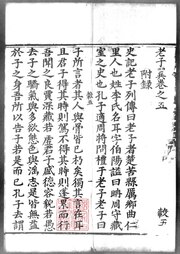 老子翼卷之五
附録
史記老子列傳曰老子者楚苦縣厲鄉曲仁
里人也姓李氏名耳字伯陽諡曰聃周守藏
室之史也孔子適周將問禮於老子老子曰
子所言者其人與骨皆已朽矣獨其言在耳
且君子得其時則駕不得其時則蓬累而行
吾聞之良賈深藏若虛君子盛德容貌若愚
去子之驕氣與多欲態色與淫志是皆無益
於子之身吾所以告子若是而已孔子去謂